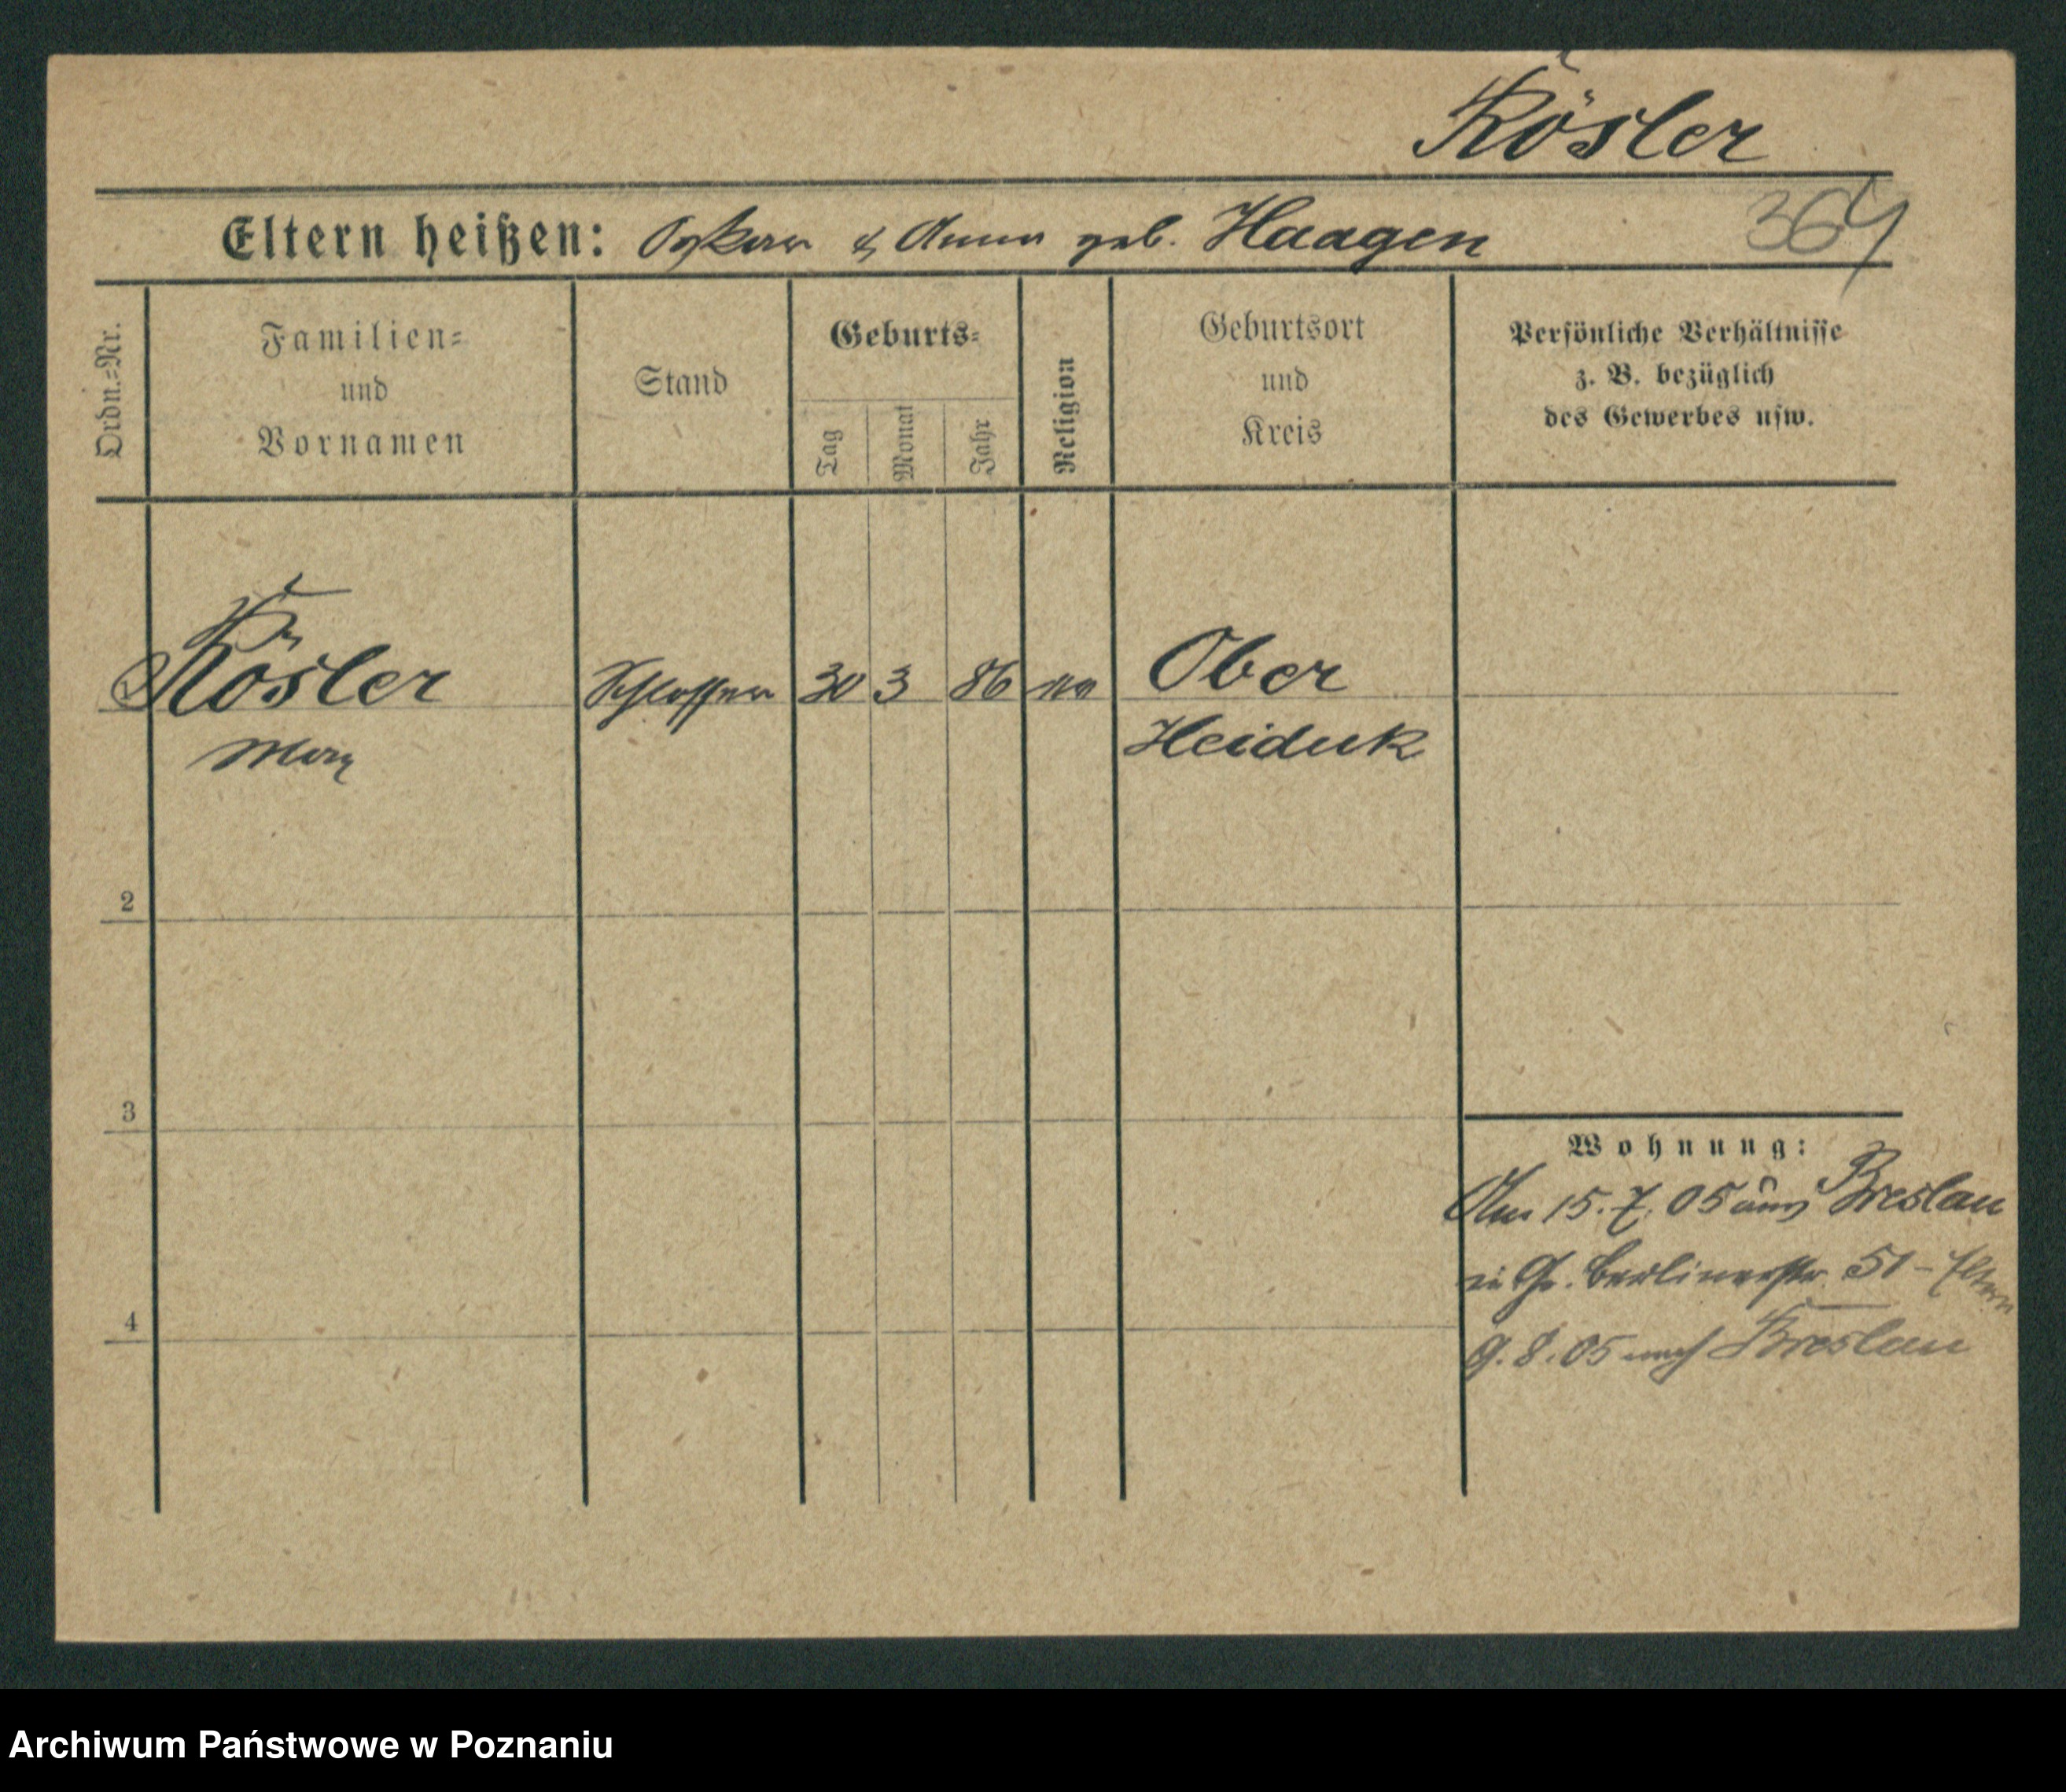 Rösler
Eltern heißen: Oskar & Anna geb. Haagen
364
Ordn.=Nr.
Familien=
und
Vornamen
Stand
Geburts=
Tag
Monat
Jahr
Religion
Geburtsort
und
Kreis
Persönliche Verhältnisse
z. B. bezüglich
des Gewerbes usw.
1
Rösler
Max
Schlosser
30
3
86
Ober
Heiduk
2
3
4
Wohnung:
Am 15. 7. 05 aus Breslau
in Gr. Berlinerstr. 51 - Eltern
9. 8. 05 nach Breslau
Archiwum Państwowe w Poznaniu